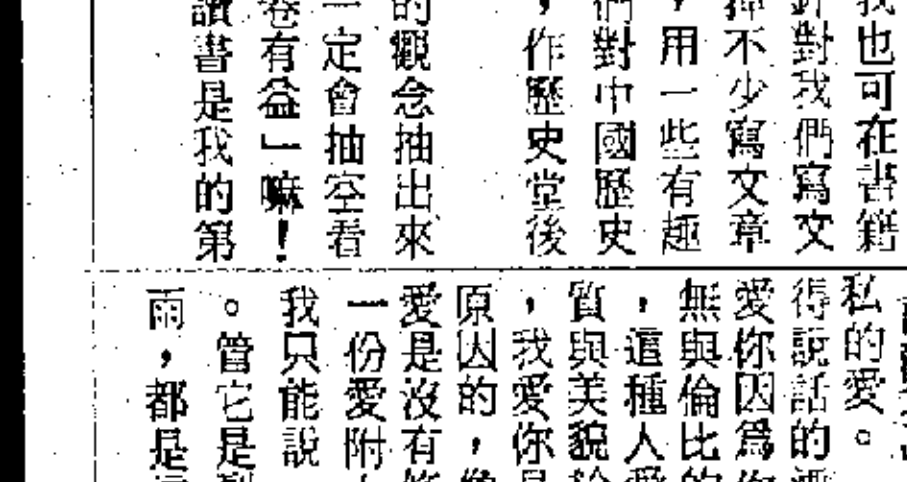 我也可在書籍
針對我們寫文
揮不少寫文章
，用一些有趣
們對中國歷史
，作歷史堂後
的觀念抽出來
一定會抽空看
卷有益」嘛！
讀書是我的第
私的愛。
得説話的
愛你因爲你
無與倫比的
，這種人愛
質與美貌於
，我愛你是
原因的，像
愛是沒有條
一份愛附
我只能説
。管它是
雨，都是